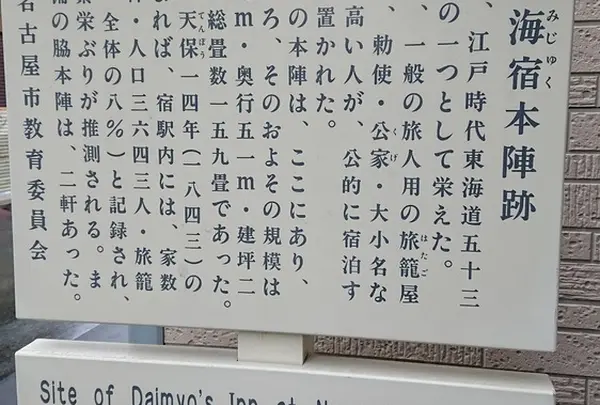 海宿本陣跡
みじゅく
、江戸時代東海道五十三
の一つとして栄えた。
、一般の旅人用の旅籠屋
はたご
、勅使・公家・大小名な
くげ
高い人が、公的に宿泊す
置かれた。
の本陣は、ここにあり、
ろ、そのおよその規模は
m・奥行五一m・建坪二
総畳数一五九畳であった。
天保一四年(一八四三)の
てんぽう
れば、宿駅内には、家数
・人口三六四三人・旅籠
全体の八%)と記録され、
栄ぶりが推測される。ま
の脇本陣は、二軒あった。
古屋市教育委員会
Site of Daimyo's Inn at